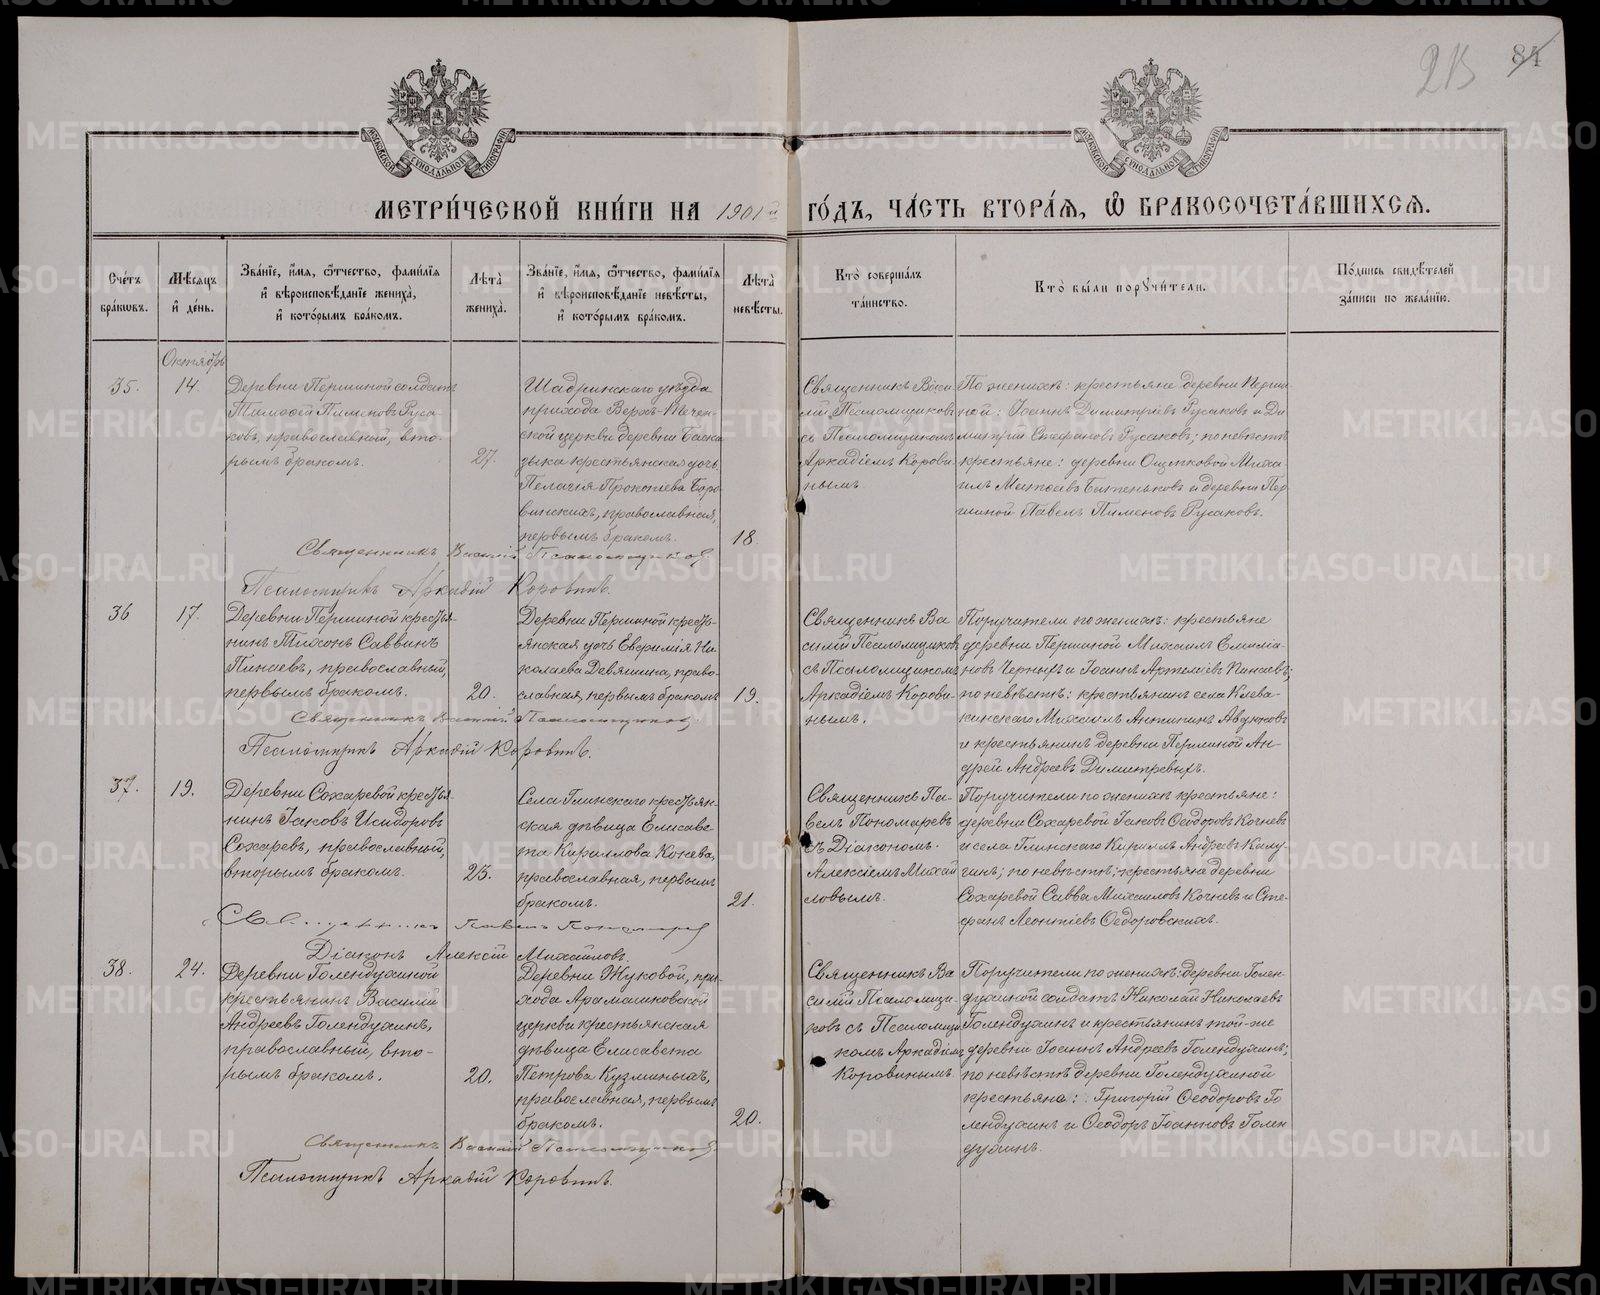 213 84
МОСКОВСКОЙ СѴНОДАЛЬНОЙ ТИПОГРАФІИ
МОСКОВСКОЙ СѴНОДАЛЬНОЙ ТИПОГРАФІИ
МЕТРИ́ЧЕСКОЙ КНИ́ГИ НА 1901й ГО́ДЪ, ЧА́СТЬ ВТОРА́Я, Ѽ БРАКОСОЧЕТА́ВШИХСЯ.
Сче́тъ бра́кѡвъ.
Мѣ́сяцъ и҆ де́нь.
Зва́нїе, и҆́мя, ѻ҆́тчество, фами́лїя и҆ вѣроисповѣ́данїе жениха̀, и҆ кото́рымъ бра́комъ.
Лѣ́та жениха̀.
Зва́нїе, и҆́мя, ѻ҆́тчество, фами́лїя и҆ вѣроисповѣ́данїе невѣ́сты, и҆ кото́рымъ бра́комъ.
Лѣ́та невѣ́сты.
Кто̀ соверша́лъ та́инство.
Кто̀ бы́ли порꙋчи́тели.
По́дпись свидѣ́телей за́писи по жела́нїю.
Октябрь
35. 14.
Деревни Першиной солдатъ
Тимофей Пименовъ Руса-
ковъ, православный, вто-
рымъ бракомъ.
27.
Шадринскаго уѣзда
прихода Верхъ-Течен-
ской церкви деревни Баска
зыка крестьянская дочь
Пелагія Прокопіева Боро
винскихъ, православная,
первымъ бракомъ.
18.
Священникъ Васи
лій Псаломщиковъ
съ Псаломщикомъ
Аркадіемъ Корови-
нымъ.
По женихѣ: крестьяне деревни Перши-
ной: Іоаннъ Димитріевъ Русаковъ и Ди
митрій Стефановъ Русаковъ; по невѣстѣ
крестьяне: деревни Ощепковой Миха-
илъ Матѳеевъ Батеньковъ и деревни Пер
шиной Павелъ Пименовъ Русаковъ.
Священникъ Василій Псаломщиковъ.
Псаломщикъ Аркадій Коровинъ.
36 17.
Деревни Першиной крестья-
нинъ Тихонъ Саввинъ
Пинаевъ, православный,
первымъ бракомъ.
20.
Деревни Першиной кресть-
янская дочь Евѳимія Ни-
колаева Девяшина, право-
славная, первымъ бракомъ
19.
Священникъ Ва
силій Псаломщиковъ
съ Псаломщикомъ
Аркадіемъ Корови-
нымъ.
Поручители по женихѣ: крестьяне
деревни Першиной Михаилъ Елисіа-
новъ Черныхъ и Іоаннъ Артеміевъ Пинаевъ;
по невѣстѣ: крестьянинъ села Клева-
кинскаго Михаилъ Антипинъ Авдюковъ
и крестьянинъ деревни Першиной Ан-
дрей Андреевъ Димитревыхъ.
Священникъ Василій Псаломщиковъ.
Псаломщикъ Аркадій Коровинъ.
37. 19.
Деревни Сохаревой крестья-
нинъ Іаковъ Исидоровъ
Сохаревъ, православный,
вторымъ бракомъ.
23.
Села Глинскаго крестьян-
ская дѣвица Елисаве
та Кириллова Кокева,
православная, первымъ
бракомъ.
21.
Священникъ Па-
велъ Пономаревъ
съ Діакономъ
Алексіемъ Михай
ловымъ.
Поручители по женихѣ крестьяне:
деревни Сохаревой Іаковъ Ѳеодоровъ Кочневъ
и села Глинскаго Кириллъ Андреевъ Калу-
гинъ; по невѣстѣ: крестьяне деревни
Сохаревой Савва Михаиловъ Кочневъ и Сте-
фанъ Леонтіевъ Ѳедоровскихъ.
Священникъ Павелъ Пономарев
Діаконъ Алексій Михайловъ.
38. 24.
Деревни Голендухиной
крестьянинъ Василій
Андреевъ Голендухинъ,
православный, вто-
рымъ бракомъ.
20.
Деревни Жуковой, при-
хода Арамашковской
церкви крестьянская
дѣвица Елисавета
Петрова Кузминыхъ,
православная, первымъ
бракомъ.
20.
Священникъ Ва
силій Псаломщи-
ковъ съ Псаломщи
комъ Аркадіемъ
Коровинымъ.
Поручители по женихѣ: деревни Голен-
духиной солдатъ Николай Николаевъ
Голендухинъ и крестьянинъ той-же
деревни Іоаннъ Андреевъ Голендухинъ;
по невѣстѣ деревни Голендухиной
крестьяна: Григорій Ѳеодоровъ Го
лендухинъ и Ѳеодоръ Іоанновъ Голен
духинъ.
Священникъ Василій Псаломщиковъ.
Псаломщикъ Аркадій Коровинъ.
METRIKI.GASO-URAL.RU